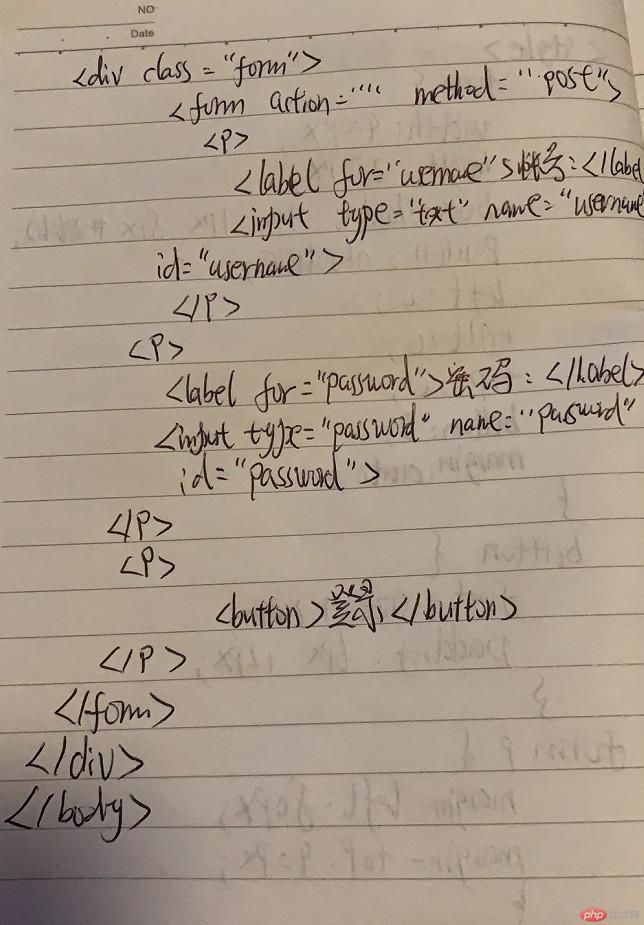 NO
Date
<div class = "form">
<form action="" method = "post">
<P>
<label for="username">账号:</label
<input type="text" name="username
id="username">
</P>
<P>
<label for="password">密码:</label>
<input type="password" name="password"
id="password">
</P>
<P>
<button>登录</button>
</P>
</form>
</div>
</body>
php 中文网